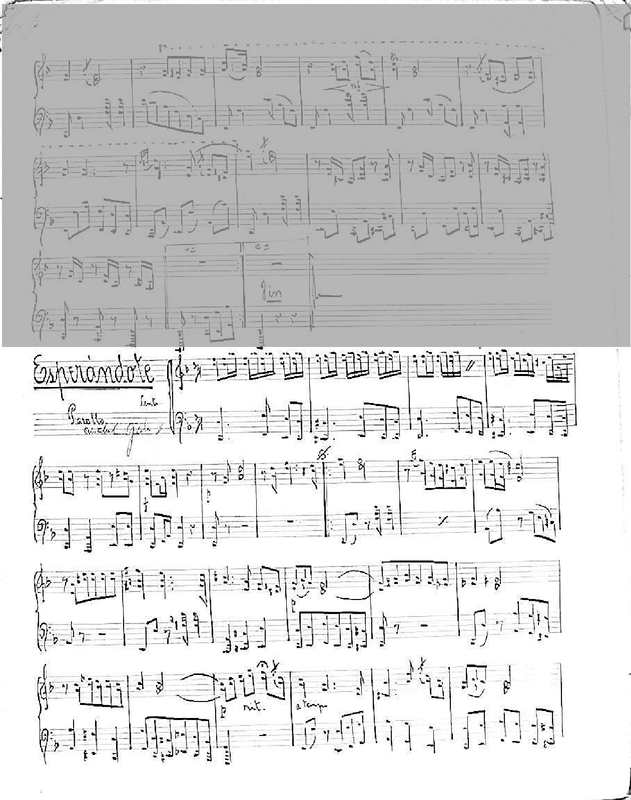 Fin
Esperándote
Lento
Pasillo
rit. a tempo